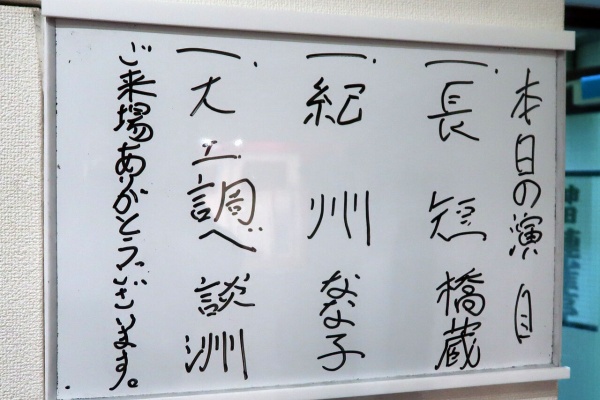 本日の演目
一、長短 橋蔵
一、紀州 なな子
一、大工調べ 談洲
ご来場ありがとうございます。